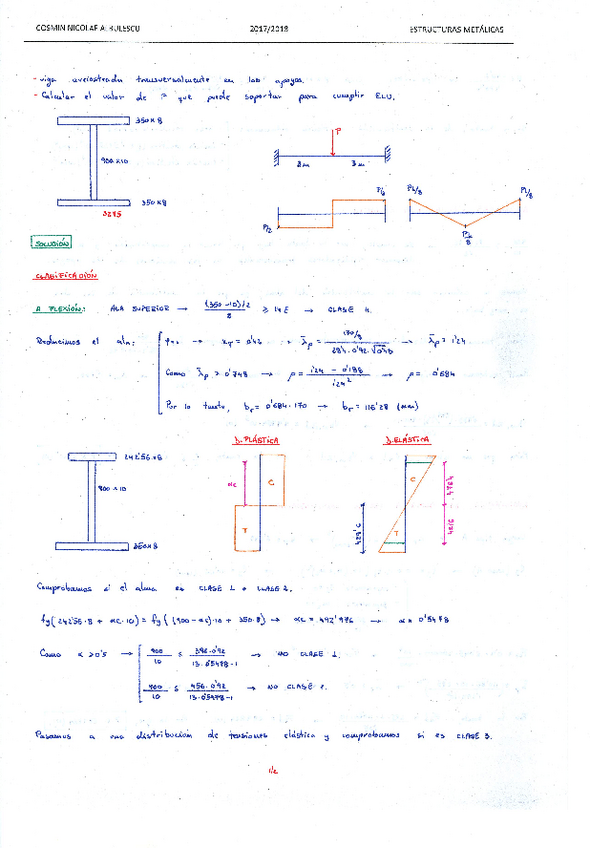 COSMIN NICOLAE ALBULESCU 2017/2018 ESTRUCTURAS METÁLICAS
- viga arriostrada transversalmente en los apoyos.
- Calcular el valor de P que puede soportar para cumplir ELU.
350x8
P
900x10
3m 3m
350x8
S275
P/2 P/2 PL/8 PL/8
PL/8
SOLUCIÓN
CLASIFICACIÓN
A FLEXIÓN: ALA SUPERIOR → (350-10)/2 / 8 ≥ 14ε → CLASE 4.
Reducimos el ala: ψ=1 → kσ = 0'43 → λ̄p = 170/8 / 28'4·0'92·√0'43 → λ̄p = 1'24
Como λ̄p > 0'748 → ρ = 1'24 - 0'188 / 1'24² → ρ = 0'684
Por lo tanto, br = 0'684·170 → br = 116'28 (mm)
D. PLÁSTICA D. ELÁSTICA
242'56x8
αc C C
900x10
T T
350x8
Comprobamos si el alma es CLASE 1 o CLASE 2.
fy(242'56·8 + αc·10) = fy((900-αc)·10 + 350·8) → αc = 492'976 → α = 0'5478
Como α > 0'5 → 900/10 ≤ 396·0'92 / 13·0'5478-1 → NO CLASE 1.
900/10 ≤ 456·0'92 / 13·0'5478-1 → NO CLASE 2.
Pasamos a una distribución de tensiones elástica y comprobamos si es CLASE 3.
1/2